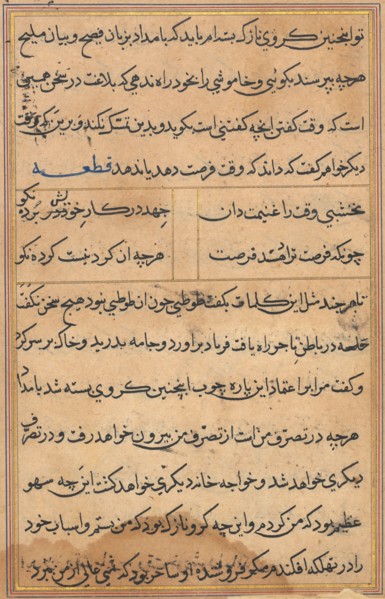 تو اینچنین کروی نازکه بسته ام باید که بامداد بزبان فصیح و بیان ملیح
هرچه بپرسند بکوئی و خاموشی را بخود راه ندهی که بلاغت در سخن همین
است که وقت کفتن انچه کفتنی است بکوید و بدین تمسک نکند و برین
دیکر خواهم کفت که داند که وقت فرصت دهد یا ندهد قطعه
نخشبی وقت را غنیمت دان
جهد در کار خود
چونکه فرصت تراهد فرصت
هرچه از کرد نیست کرده نکو
تاجر چند مثل این کلمات بکفت طوطی چون از طوطی نبود هیچ سخن نکفت
در باطن تاجر راه یافت فریاد براورد و جامه بدرید و خاک بر سر کرد
و کفت مرا بر اعتماد این پاره چوب اینچنین کروی بسته شد بامداد
هرچه در تصرف من است از تصرف من بیرون خواهد رفت و در تصرف
دیکری خواهد شد و خواجه خانه دیکری خواهد کشت این چه سهو
عظیم بود که من کردم و این چه کرو نازک بود که من بستم و اسباب خود
را در تهلکه افکندم مکر فروشنده او ساخر بود که